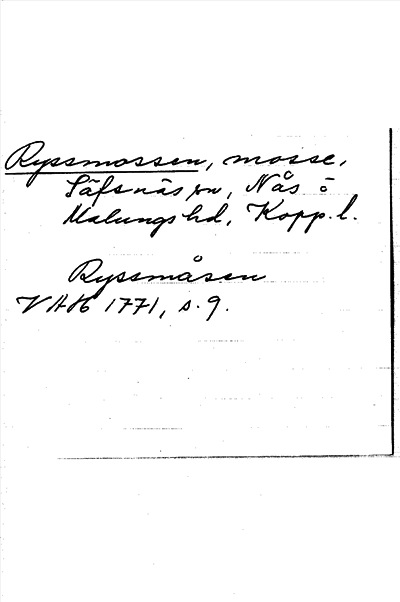 Ryssmossen, mosse,
Säfsnäs sn, Nås o
Malungs hd, Kopp. l.
Ryssmåsen
VAH 1771, s. 9.